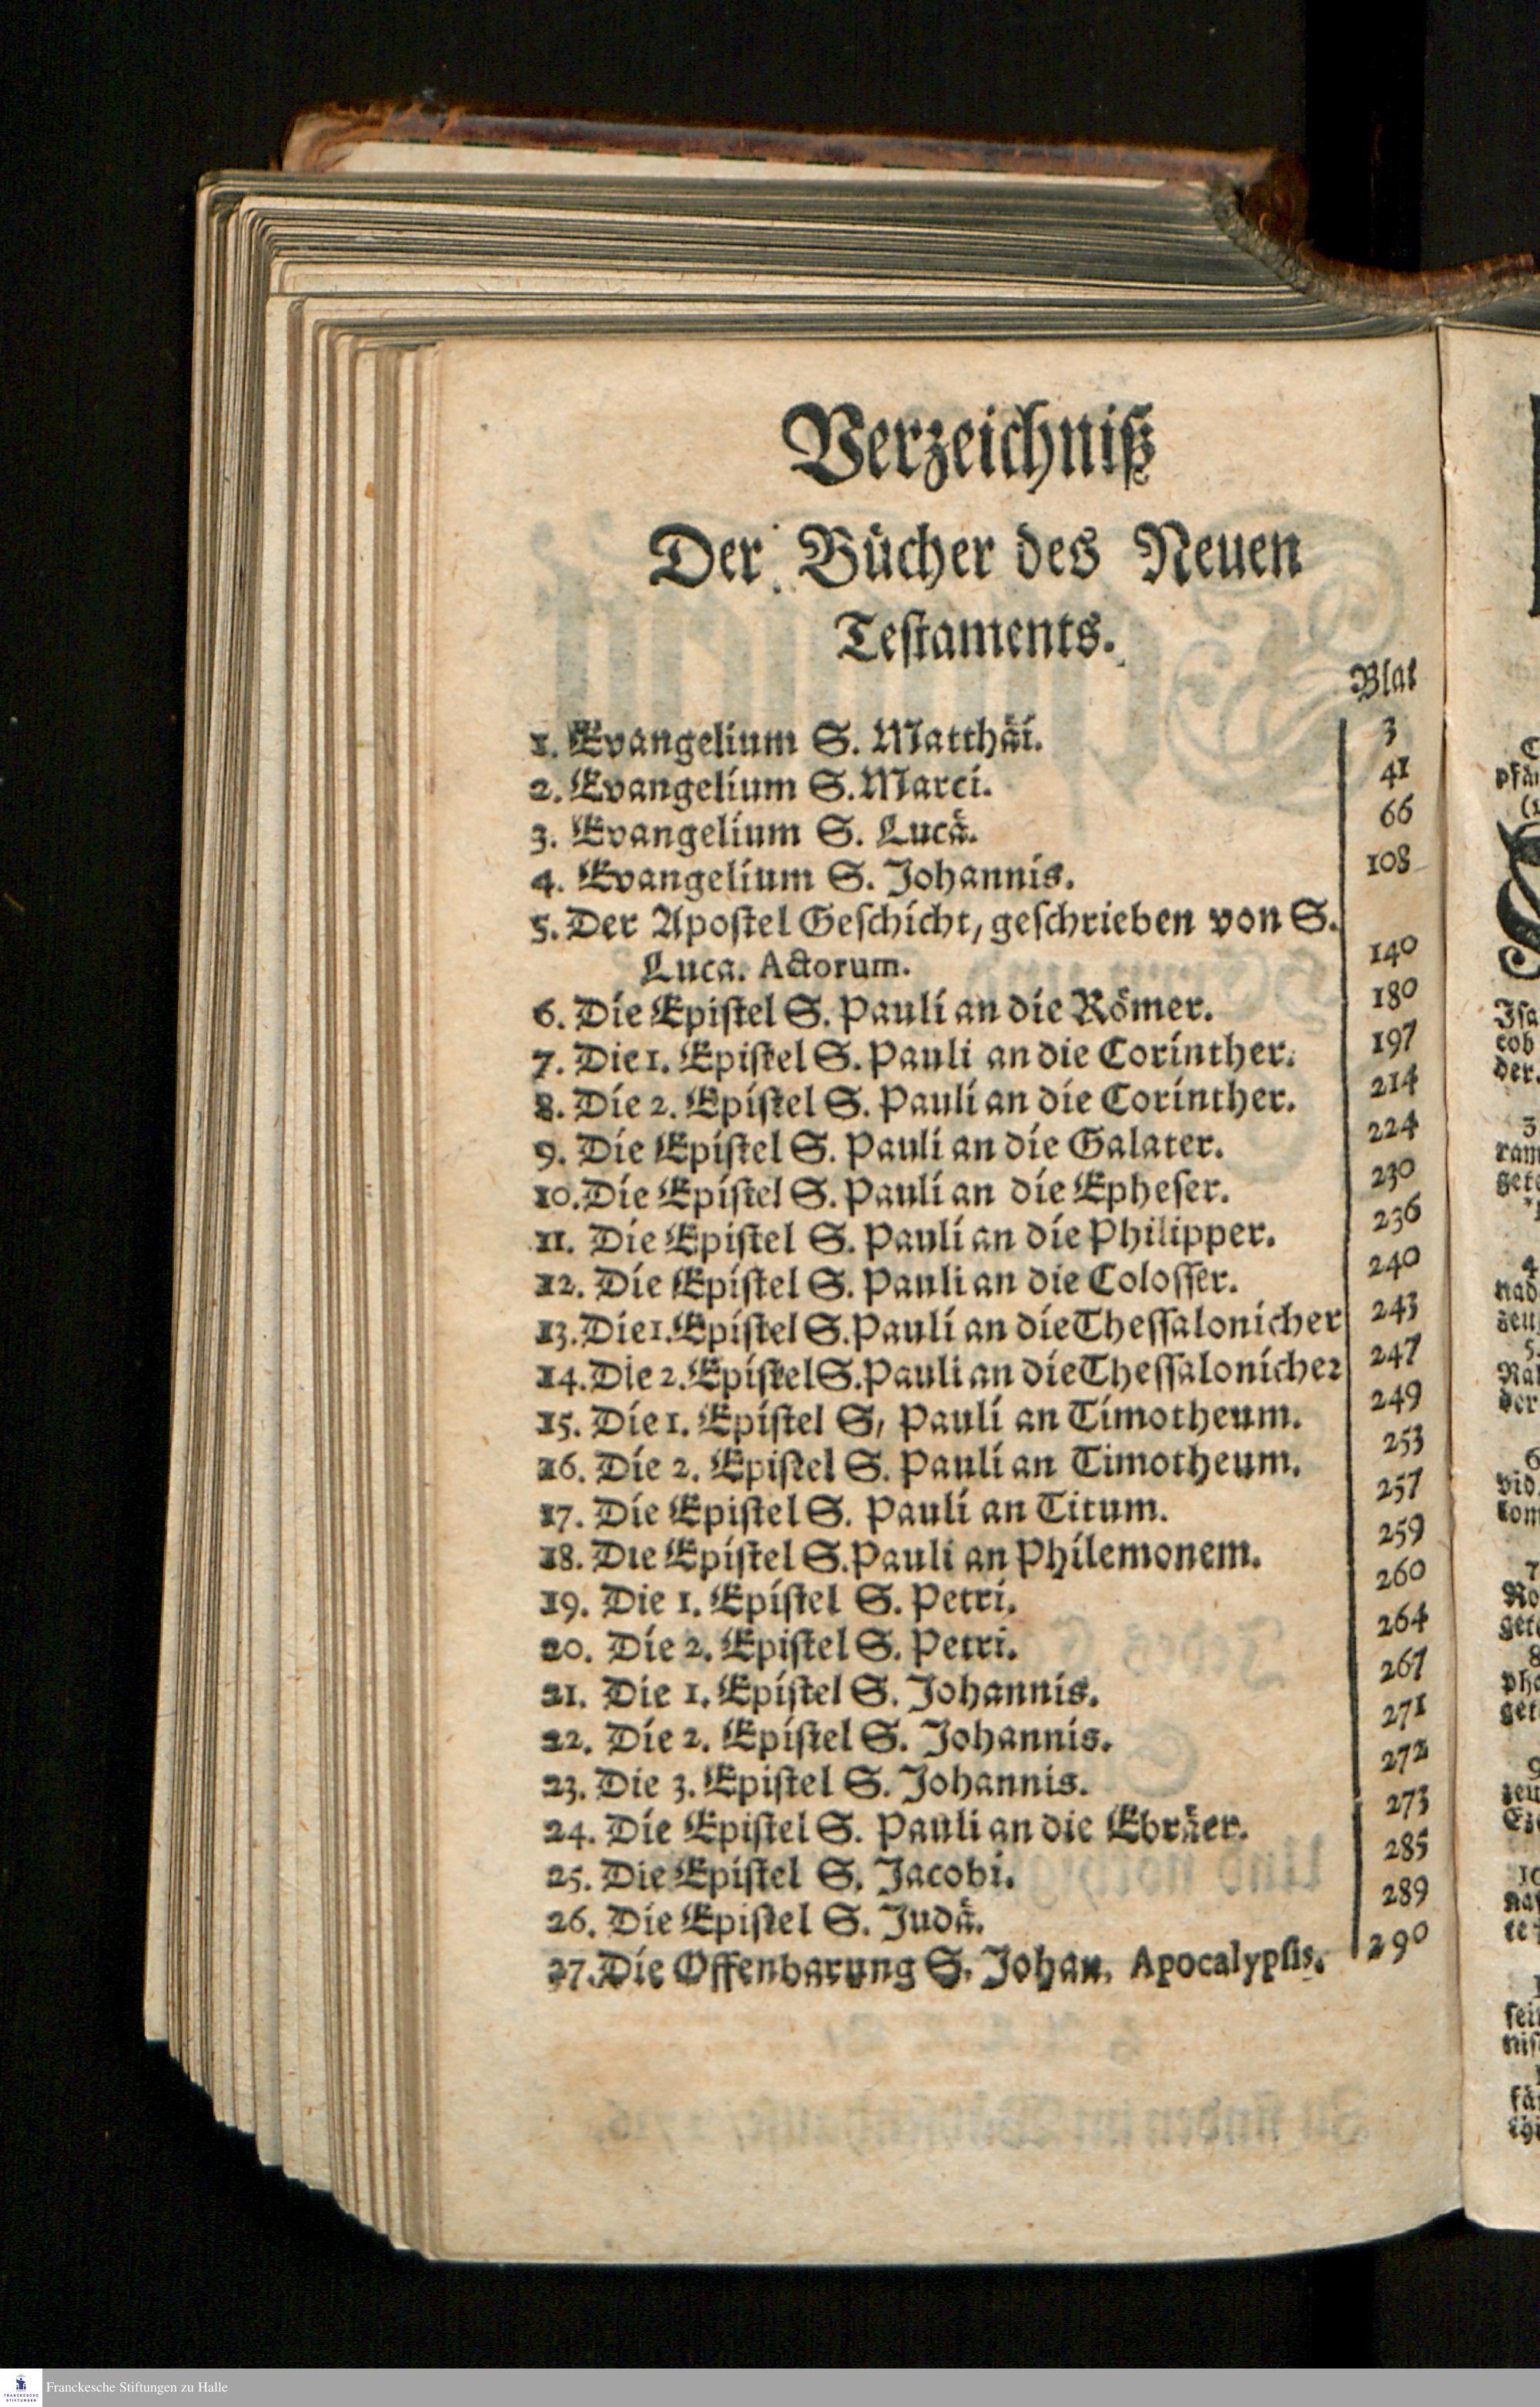 Verzeichniß
Der Bücher des Neuen
Testaments.
Blat
1. Evangelium S. Matthäi. 3
2. Evangelium S. Marci. 41
3. Evangelium S. Lucä. 66
4. Evangelium S. Johannis. 108
5. Der Apostel Geschicht, geschrieben von S.
Luca. Actorum. 140
6. Die Epistel S. Pauli an die Römer. 180
7. Die 1. Epistel S. Pauli an die Corinther. 197
8. Die 2. Epistel S. Pauli an die Corinther. 214
9. Die Epistel S. Pauli an die Galater. 224
10. Die Epistel S. Pauli an die Epheser. 230
11. Die Epistel S. Pauli an die Philipper. 236
12. Die Epistel S. Pauli an die Colosser. 240
13. Die 1. Epistel S. Pauli an die Thessalonicher 243
14. Die 2. Epistel S. Pauli an die Thessalonicher 247
15. Die 1. Epistel S, Pauli an Timotheum. 249
16. Die 2. Epistel S. Pauli an Timotheum. 253
17. Die Epistel S. Pauli an Titum. 257
18. Die Epistel S. Pauli an Philemonem. 259
19. Die 1. Epistel S. Petri. 260
20. Die 2. Epistel S. Petri. 264
21. Die 1. Epistel S. Johannis. 267
22. Die 2. Epistel S. Johannis. 271
23. Die 3. Epistel S. Johannis. 272
24. Die Epistel S. Pauli an die Ebräer. 273
25. Die Epistel S. Jacobi. 285
26. Die Epistel S. Judä. 289
27. Die Offenbarung S. Johan. Apocalypsis. 290
Franckesche Stiftungen zu Halle